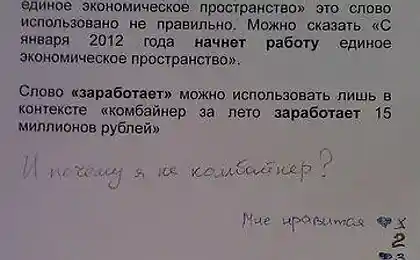 единое экономическое пространство» это слово
использовано не правильно. Можно сказать «С
января 2012 года начнет работу единое
экономическое пространство».
Слово «заработает» можно использовать лишь в
контексте «комбайнер за лето заработает 15
миллионов рублей»
И почему я не комбайнер?
Мне нравится